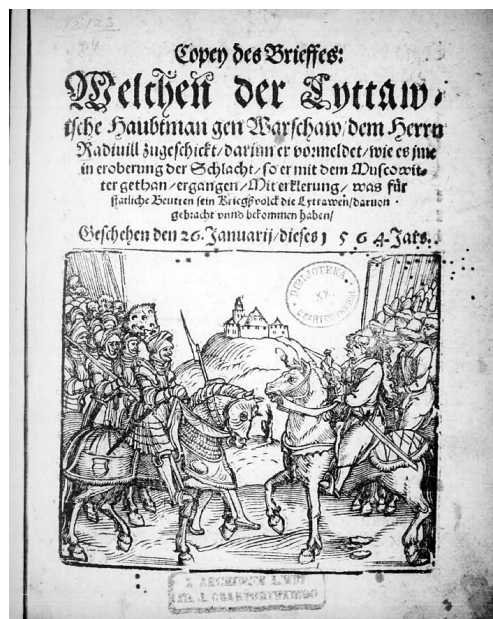 12123
Copey des Brieffes:
Welchen der Lyttaw⸗
ische Haubtman gen Warschaw/dem Herrn
Radiuill zugeschickt/darinn er vormeldet/wie es jme
in eroberung der Schlacht/so er mit dem Muscowit⸗
ter gethan/ergangen/Mit erklerung/was für
statliche Beutten sein Kriegßvolck die Lyttawen/daruon
gebracht vnnd bekommen haben/
Geschehen den 26. Januarij/dieses 1564. Jars.
BIBLIOTEKA
XX.
CZARTORYSKICH